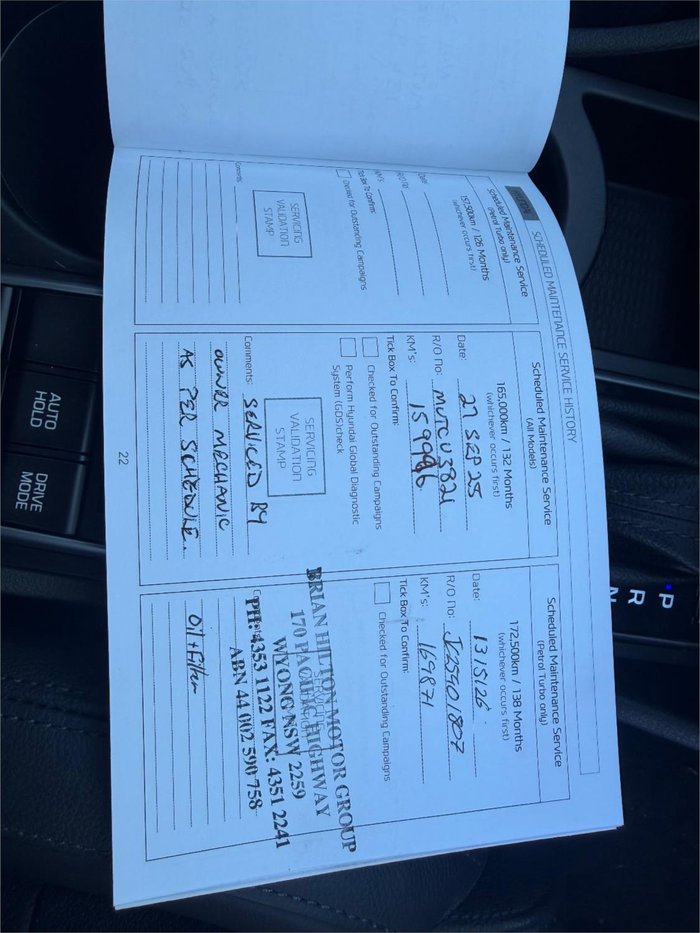 SCHEDULED MAINTENANCE SERVICE HISTORY
Scheduled Maintenance Service
(Petrol Turbo only)
157,500km / 126 Months
(whichever occurs first)
Date:
R/O no:
KM's:
Tick Box To Confirm:
Checked for Outstanding Campaigns
SERVICING
VALIDATION
STAMP
Comments:
Scheduled Maintenance Service
(All Models)
165,000km / 132 Months
(whichever occurs first)
Date: 27 SEP 25
R/O no: MVTCU3821
KM's: 159996
Tick Box To Confirm:
Checked for Outstanding Campaigns
Perform Hyundai Global Diagnostic
System (GDS)check
SERVICING
VALIDATION
STAMP
Comments: SERVICED BY
OWNER MECHANIC
AS PER SCHEDULE.
Scheduled Maintenance Service
(Petrol Turbo only)
172,500km / 138 Months
(whichever occurs first)
Date: 13/5/26
R/O no: J25401807
KM's: 169871
Tick Box To Confirm:
Checked for Outstanding Campaigns
BRIAN HILTON MOTOR GROUP
170 PACIFIC HIGHWAY
WYONG NSW 2259
PH: 4353 1122 FAX: 4351 2241
ABN 44 002 590 758
Oil + Filter
22
AUTO
HOLD
DRIVE
MODE
P
R
N